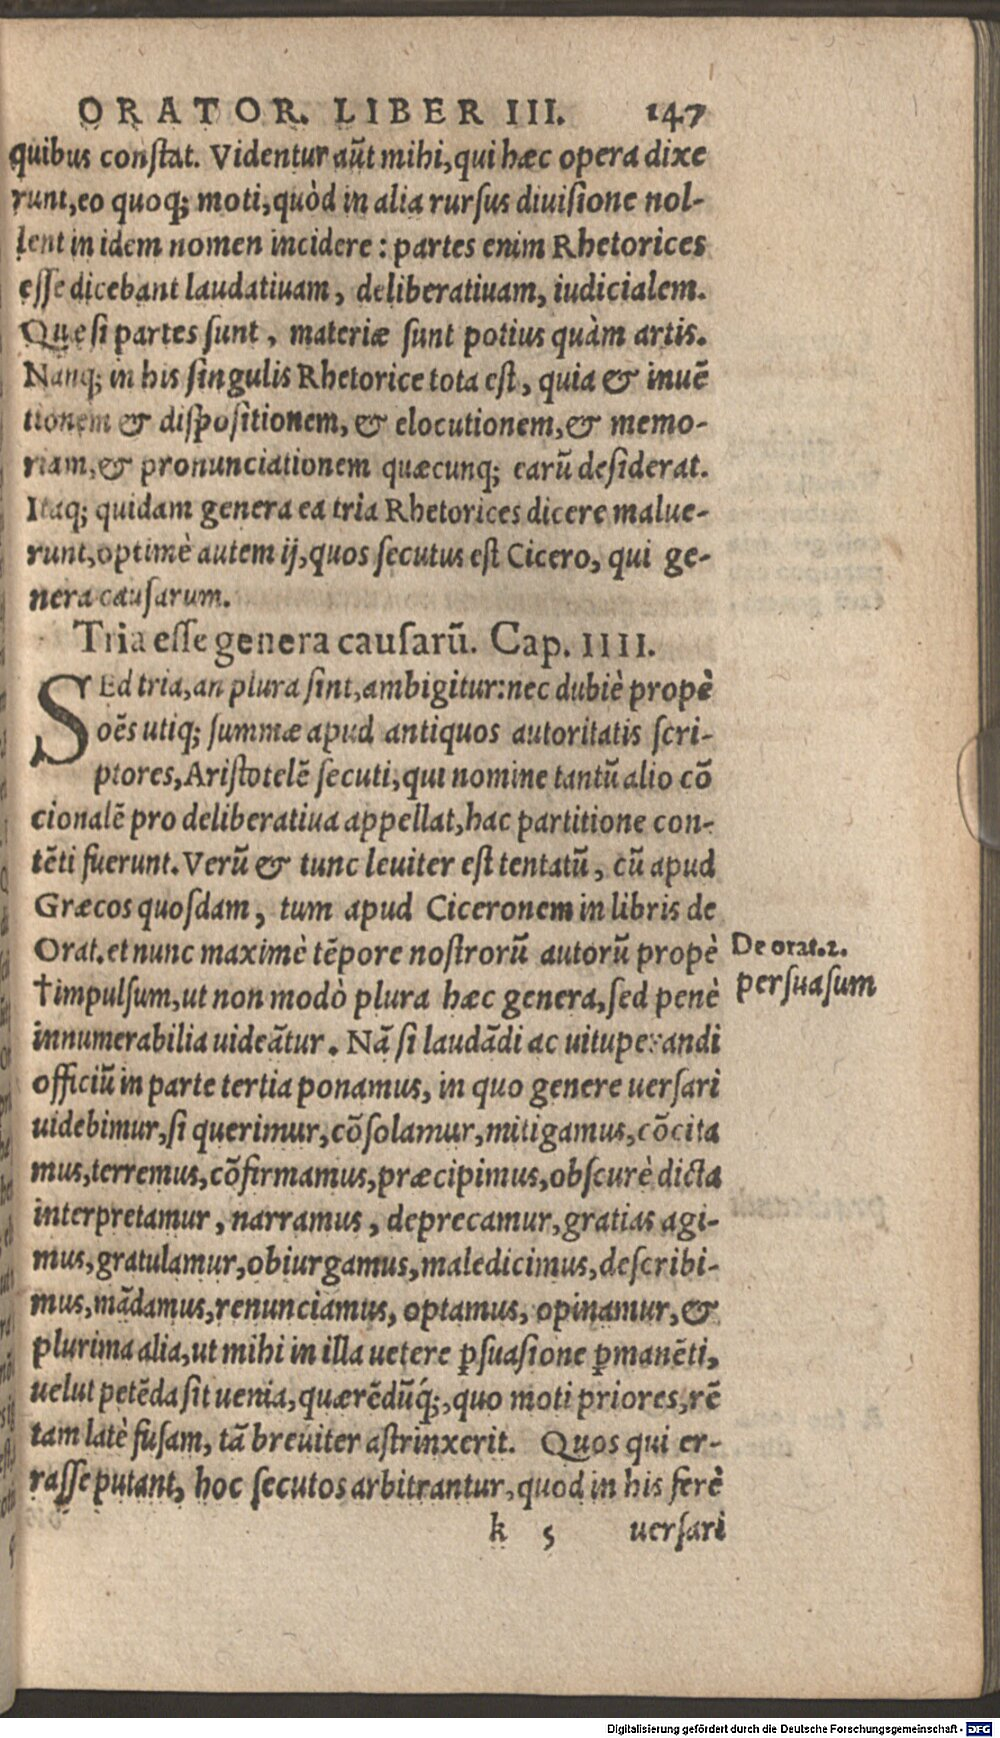 ORATOR. LIBER III. 147
quibus constat. Videntur aūt mihi, qui hæc opera dixe
runt, eo quoq; moti, quòd in alia rursus diuisione nol-
lent in idem nomen incidere: partes enim Rhetorices
esse dicebant laudatiuam, deliberatiuam, iudicialem.
Que si partes sunt, materiæ sunt potius quàm artis.
Nanq; in his singulis Rhetorice tota est, quia & inuē
tionem & dispositionem, & elocutionem, & memo-
riam, & pronunciationem quæcunq; earū desiderat.
Itaq; quidam genera ea tria Rhetorices dicere malue-
runt, optimè autem ij, quos secutus est Cicero, qui ge-
nera causarum.
Tria esse genera causarū. Cap. IIII.
SEd tria, an plura sint, ambigitur: nec dubiè propè
oēs utiq; summæ apud antiquos autoritatis scri-
ptores, Aristotelē secuti, qui nomine tantū alio cō
cionalē pro deliberatiua appellat, hac partitione con-
tēti fuerunt. Verū & tunc leuiter est tentatū, cū apud
Græcos quosdam, tum apud Ciceronem in libris de
Orat. et nunc maximè tēpore nostrorū autorū propè
De orat. 2.
†impulsum, ut non modò plura hæc genera, sed penè
persuasum
innumerabilia uideātur. Nā si laudādi ac uituperandi
officiū in parte tertia ponamus, in quo genere uersari
uidebimur, si querimur, cōsolamur, mitigamus, cōcita
mus, terremus, cōfirmamus, præcipimus, obscurè dicta
interpretamur, narramus, deprecamur, gratias agi-
mus, gratulamur, obiurgamus, maledicimus, describi-
mus, mādamus, renunciamus, optamus, opinamur, &
plurima alia, ut mihi in illa uetere ꝑsuasione ꝑmanēti,
uelut petēda sit uenia, quærēdūq́;, quo moti priores, rē
tam latè fusam, tā breuiter astrinxerit. Quos qui er-
rasse putant, hoc secutos arbitrantur, quod in his ferè
k 5 uersari
Digitalisierung gefördert durch die Deutsche Forschungsgemeinschaft - DFG